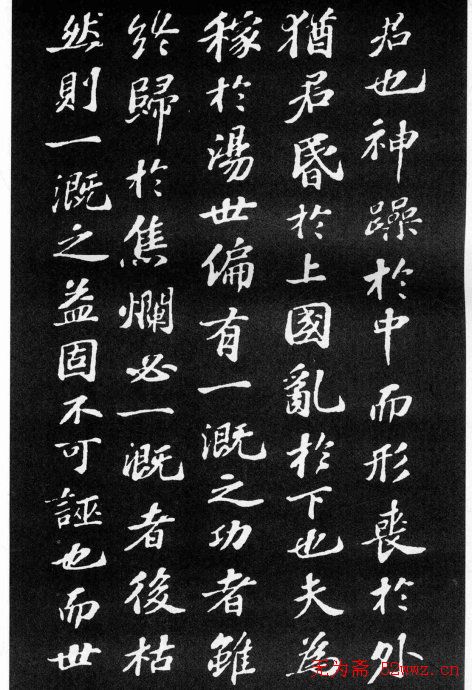 君也神躁於中而形喪於外
猶君昏於上國亂於下也夫為
稼於湯世偏有一溉之功者雖
終歸於焦爛必一溉者後枯
然則一溉之益固不可誣也而世
无为斋 82wwz.cn